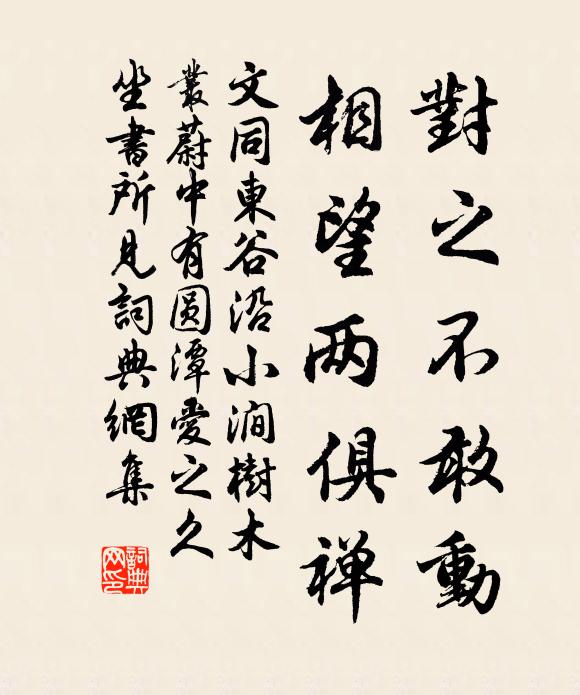 對之不敢動
相望两俱禅
文同東谷沿小澗樹木
叢蔚中有圆潭愛之久
坐書所見詞典網集
詞典网印